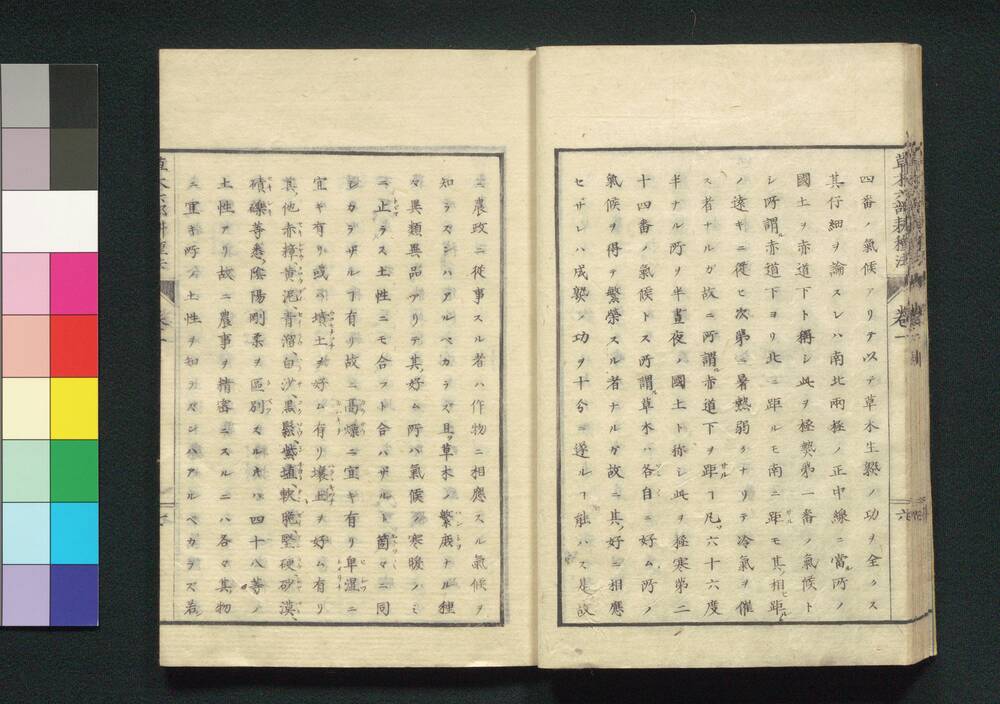 四番ノ氣候アリテ以テ草木生熟ノ功ヲ全クス
其仔細ヲ論スレハ南北兩極ノ正中線ニ當ル所ノ
國土ヲ赤道下ト稱シ此ヲ極熱第一番ノ氣候ト
シ所謂ル赤道下ヨリ北ニ距ルモ南ニ距ルモ其相距ル
ノ遠キニ從ヒ次第ニ暑熱弱クナリテ冷氣ヲ催
ス者ナルガ故ニ所謂ル赤道下ヲ距ルヿ凡ソ六十六度
半ナル所ヲ半晝夜ノ國土ト稱シ此ヲ極寒第二
十四番ノ氣候トス所謂ル草木ハ各自ニ好ム所ノ
氣候ヲ得テ繁榮スル者ナルガ故ニ其ノ好ニ相應
セザレハ成熟ノ功ヲ十分ニ遂ルヿ能ハス是故
ニ農政ニ從事スル者ハ作物ニ相應スル氣候ヲ
知ラズンハアルベカラズ且ツ草木ノ繁庶ナル種
々異類異品アリテ其ノ好ム所ハ氣候ノ寒暖ノミ
ニ止ラス土性ニモ合フト合ハザルト箇々ニ同
シカラザルヿ有リ故ニ高燥ニ宜キ有リ卑濕ニ
宜キ有リ或ハ墳土ヲ好ム有リ壤土ヲ好ム有リ
其ノ他赤埴黄泥青溜白沙黒鬆紫壚軟脆堅硬砂漠
磧礫等悉ク陰陽剛柔ヲ區別スルキハ四十八等ノ
土性アリ故ニ農事ヲ精審ニスルニハ各々其物
ニ宜キ所ノ土性ヲ知ラズンハアルベカラズ若
草木六部耕種法
卷一
六